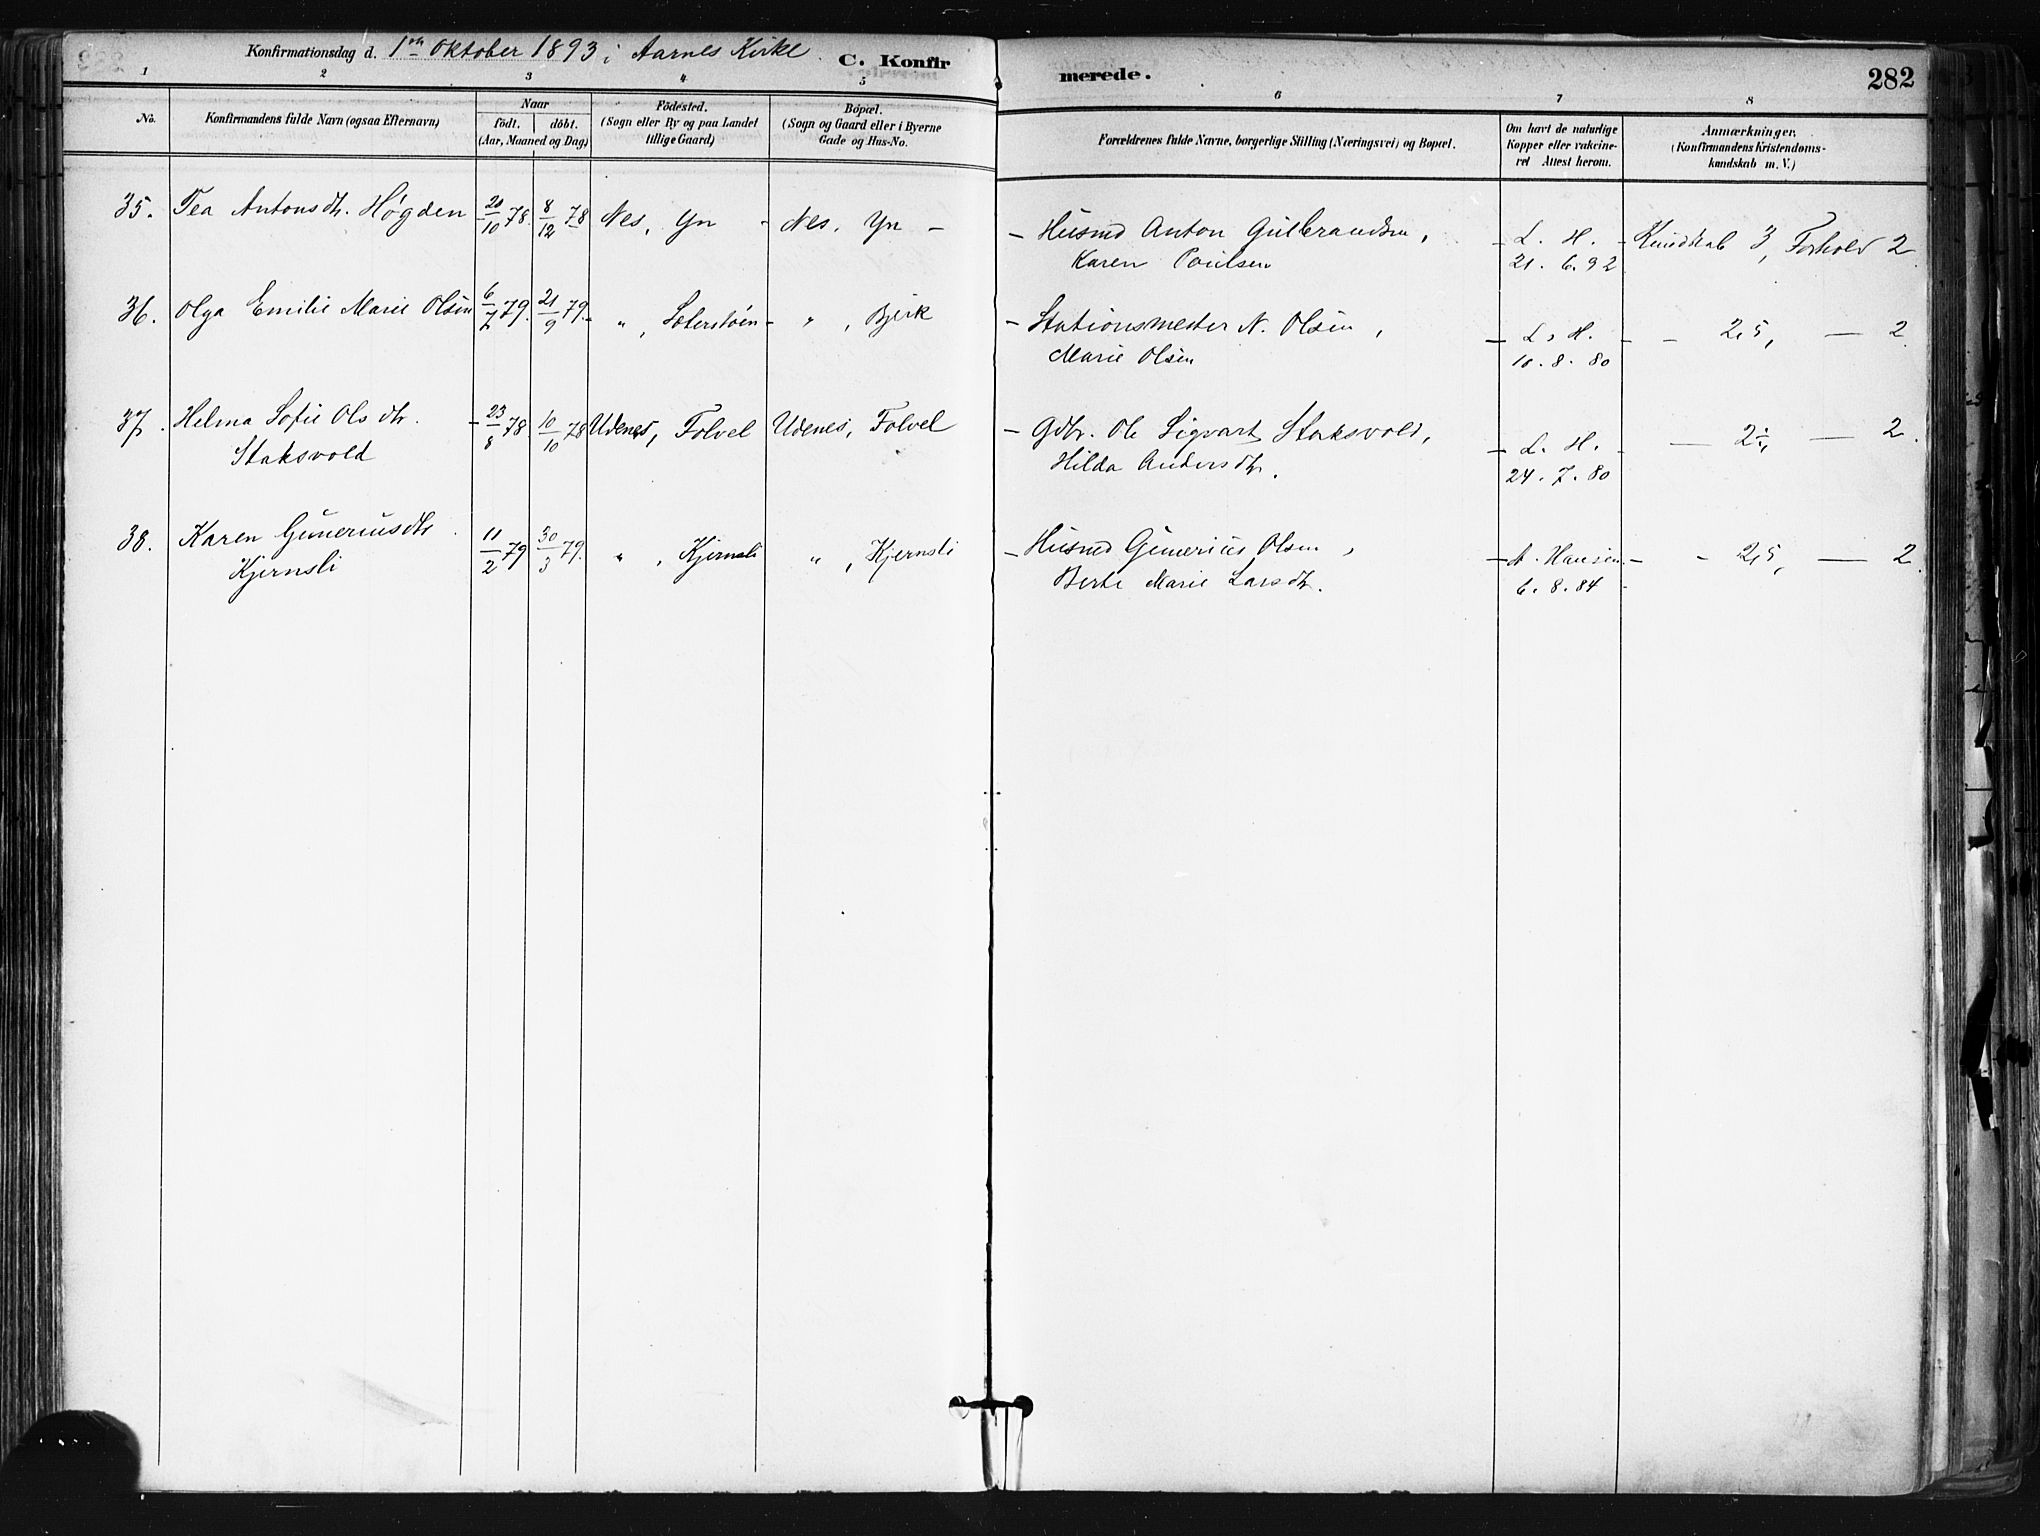 Konfirmationsdag d. 1ste Oktober 1893 i Aarnes Kirke. C. Konfirmerede. 282
1 2 3 4 5 6 7 8
No. Konfirmandens fulde Navn (ogsaa Efternavn) Naar födt. döbt. (Aar, Maaned og Dag) Födested. (Sogn eller By og paa Landet tillige Gaard) Bopæl. (Sogn og Gaard eller i Byerne Gade og Hus-No. Forældrenes fulde Navne, borgerlige Stilling (Næringsvei) og Bopæl. Om havt de naturlige Kopper eller vakcineret Attest herom. Anmærkninger, (Konfirmandens Kristendomskundskab m. V.)
35. Tea Antonsdtr. Høgden 20/10 78. 8/12 78 Nes, Yn - Nes, Yn - - Husmd Anton Gulbrandsen, - L. H. - Kundskab 3, Forhold 2.
Karen Poulsen 21. 6. 92
36. Olga Emilie Marie Olsen 6/7 79. 21/9 79. - " , Seterstøen - " , Bjerk - Stationsmester N. Olsen, - L. H. - - 2,5, — 2.
Marie Olsen 10. 8. 80
37. Helma Sofie Olsdtr. - 23/8 78. 10/10 78 Udenes, Folvel Udenes, Folvel - Gdbr. Ole Sigvart Staksvold, - L. H. - — 2,5, — 2.
Staksvold Hilda Andersdtr. 24. 7. 80
38. Karen Guneriusdtr. 11/2 79 30/3 79. " , Kjernsli " , Kjernsli - Husmd Gunerius Olsen, - A. Hansen - - 2,5, — 2.
Kjernsli Berte Marie Larsdtr. 6. 8. 84